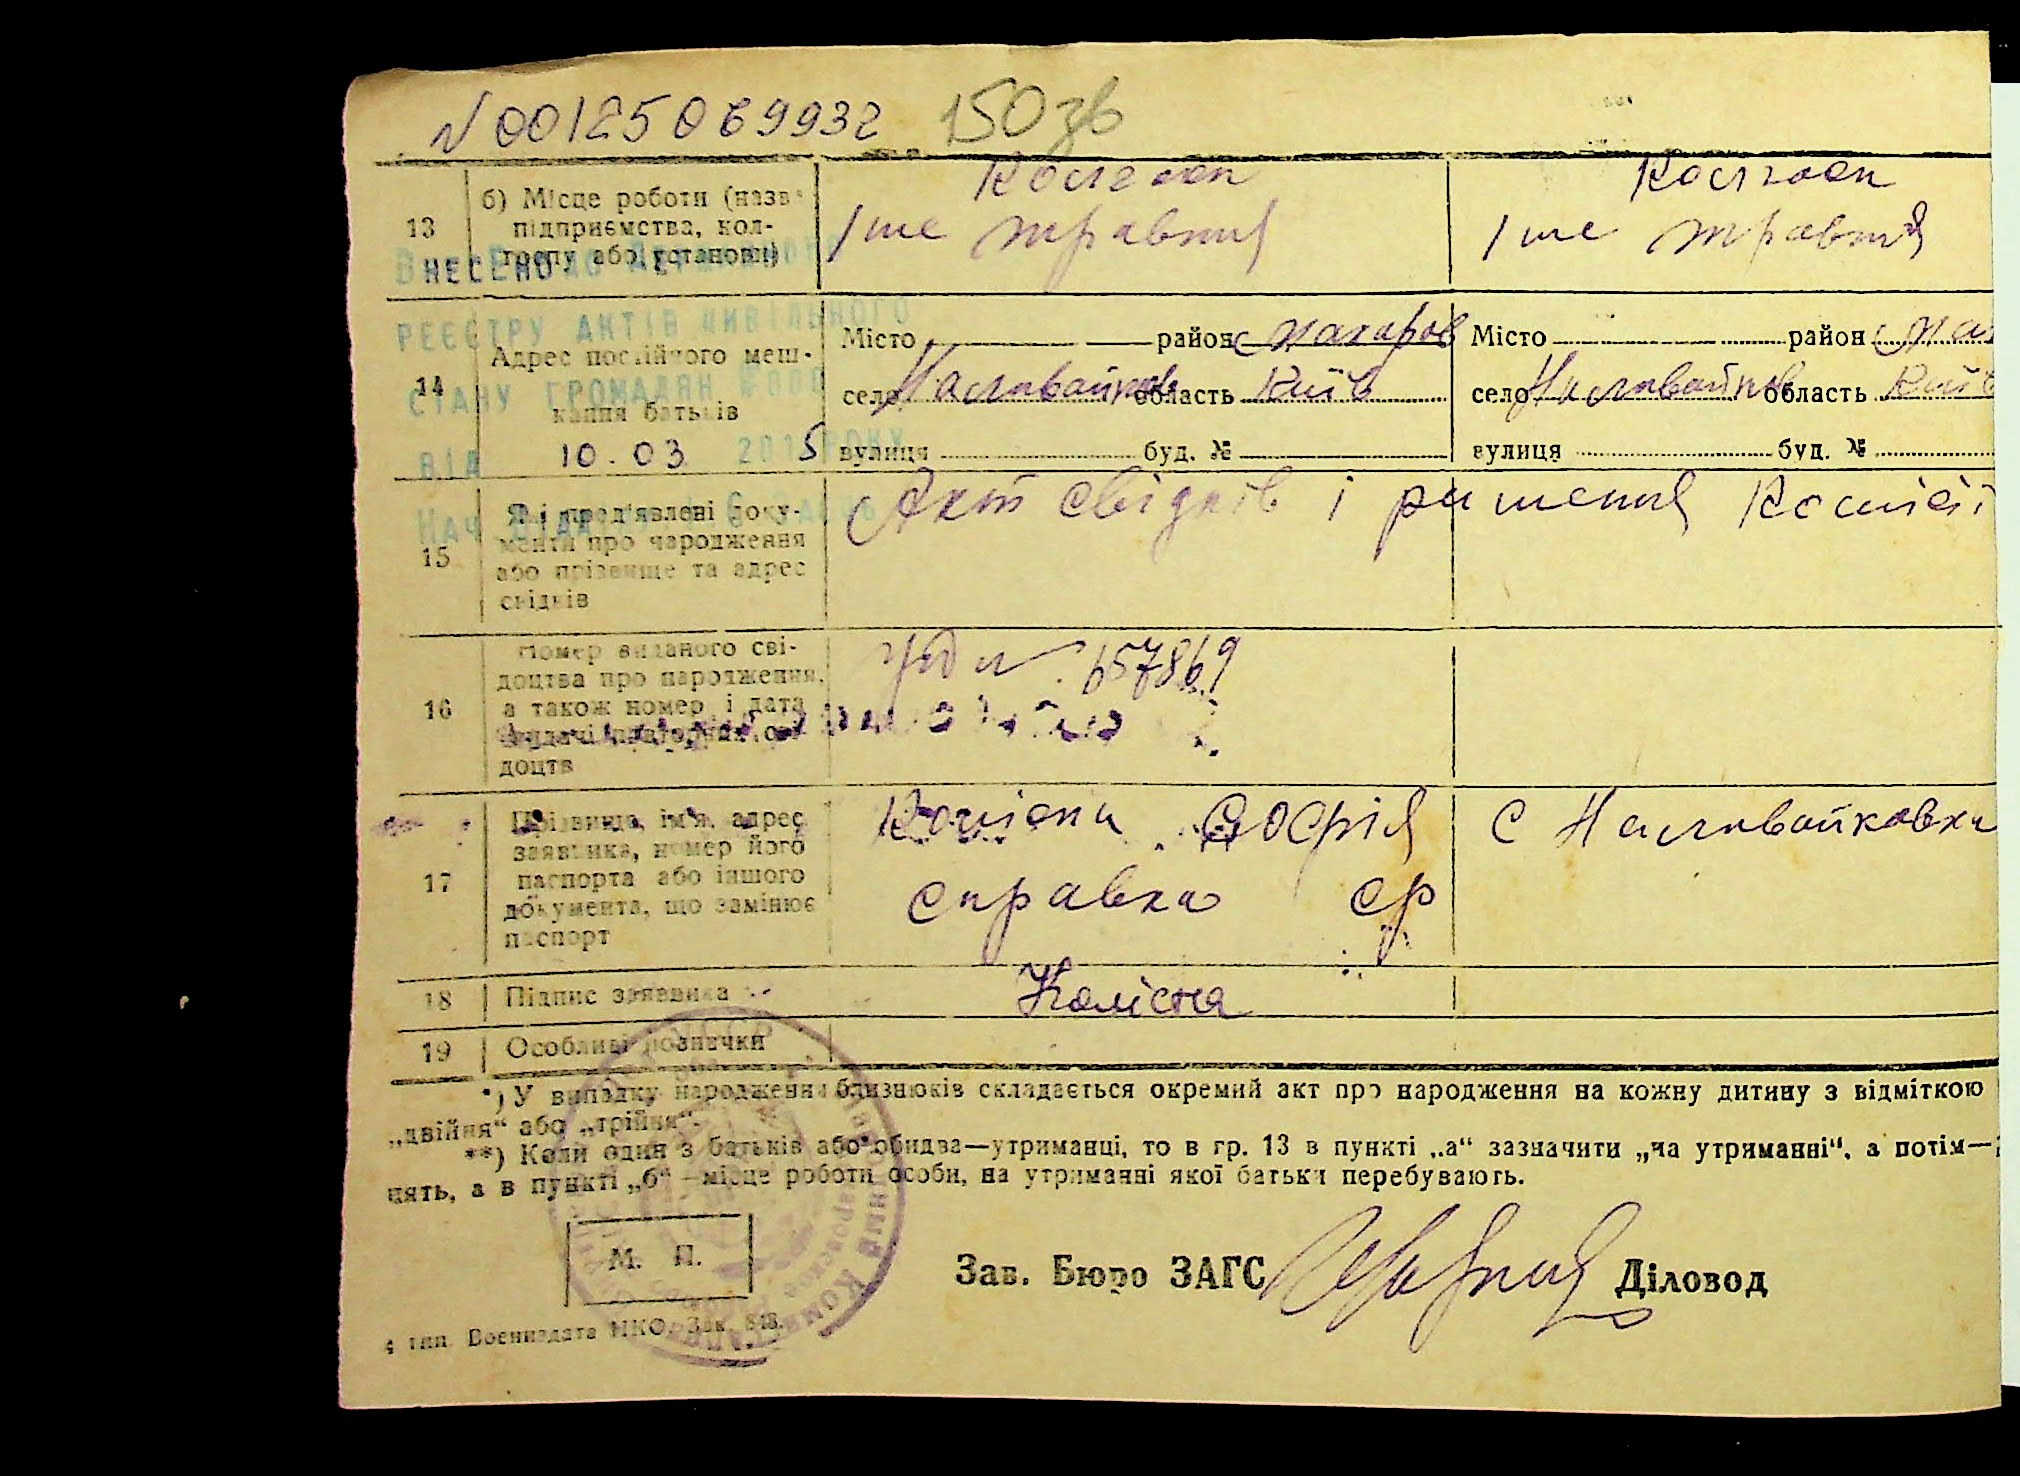 N 00125069932 150зв
13 б) Місце роботи (назва підприємства, кол-
госпу або установи)
Колгосп
1ше травня
Колгосп
1ше травня
ВНЕСЕНО ДО ДЕРЖАВНОГО
РЕЄСТРУ АКТІВ ЦИВІЛЬНОГО
СТАНУ ГРОМАДЯН
ВІД 10.03 2015 РОКУ
14 Адрес постійного меш-
кання батьків
Місто район Макаров
село Наливайков область Київ
вулиця буд. №
Місто район Мак
село Наливайков область Київ
вулиця буд. №
15 Які пред'явлені доку-
менти про народження
або прізвище та адрес
свідків
Акт свідків і ришення Комісії
16 Номер виданого сві-
доцтва про народження,
а також номер і дата
видачі повторних сві-
доцтв
657869
17 Прізвище, ім'я, адрес
заявника, номер його
паспорта або іншого
документа, що замінює
паспорт
Колісни Софія с Наливайковка
справка ср
18 Підпис заявника
Колісна
19 Особливі познички
*) У випадку народження близнюків складається окремий акт про народження на кожну дитину з відміткою
„двійня“ або „трійня“.
**) Коли один з батьків або обидва—утриманці, то в гр. 13 в пункті „а“ зазначити „на утриманні“, а потім—
цять, а в пункті „б“—місце роботи особи, на утриманні якої батьки перебувають.
М. П.
Зав. Бюро ЗАГС Діловод
4 тип. Воениздата НКО. Зак. 848.